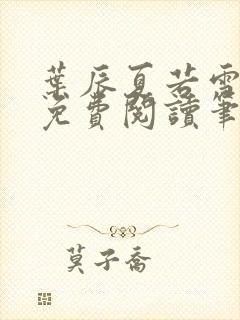 葉辰夏若雪
免費閱讀筆
莫子喬